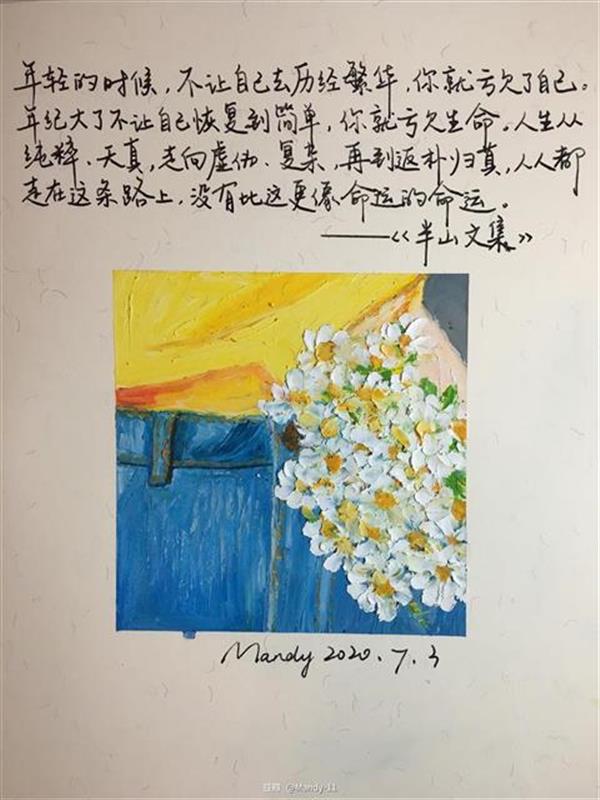 年轻的时候，不让自己去历经繁华，你就亏欠了自己。
年纪大了不让自己恢复到简单，你就亏欠生命。人生从
纯粹、天真，走向虚伪、复杂，再到返朴归真，人人都
走在这条路上，没有比这更像命运的命运。
——《半山文集》
Mandy 2020.7.3
豆瓣 @Mandy-11